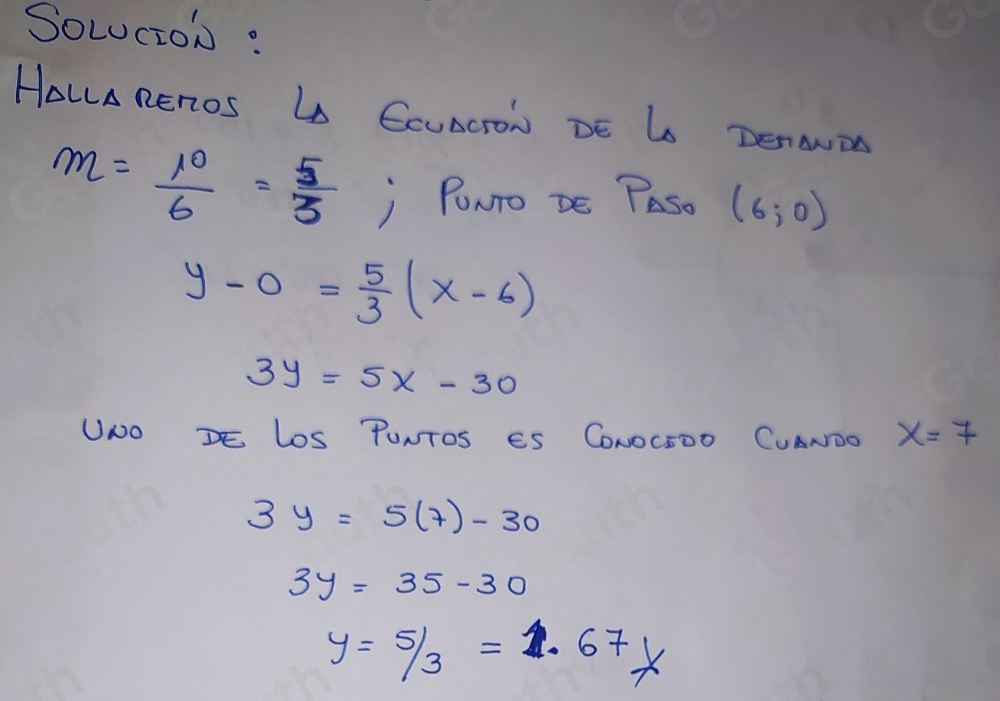 SOLUCIÓN :
HALLAREMOS LA ECUACIÓN DE LA DEMANDA
m = 10/6 = 5/3 ; PUNTO DE PASO (6;0)
y - 0 = 5/3 (x - 6)
3y = 5x - 30
UNO DE LOS PUNTOS ES CONOCIDO CUANDO X = 7
3y = 5(7) - 30
3y = 35 - 30
y = 5/3 = 1.67